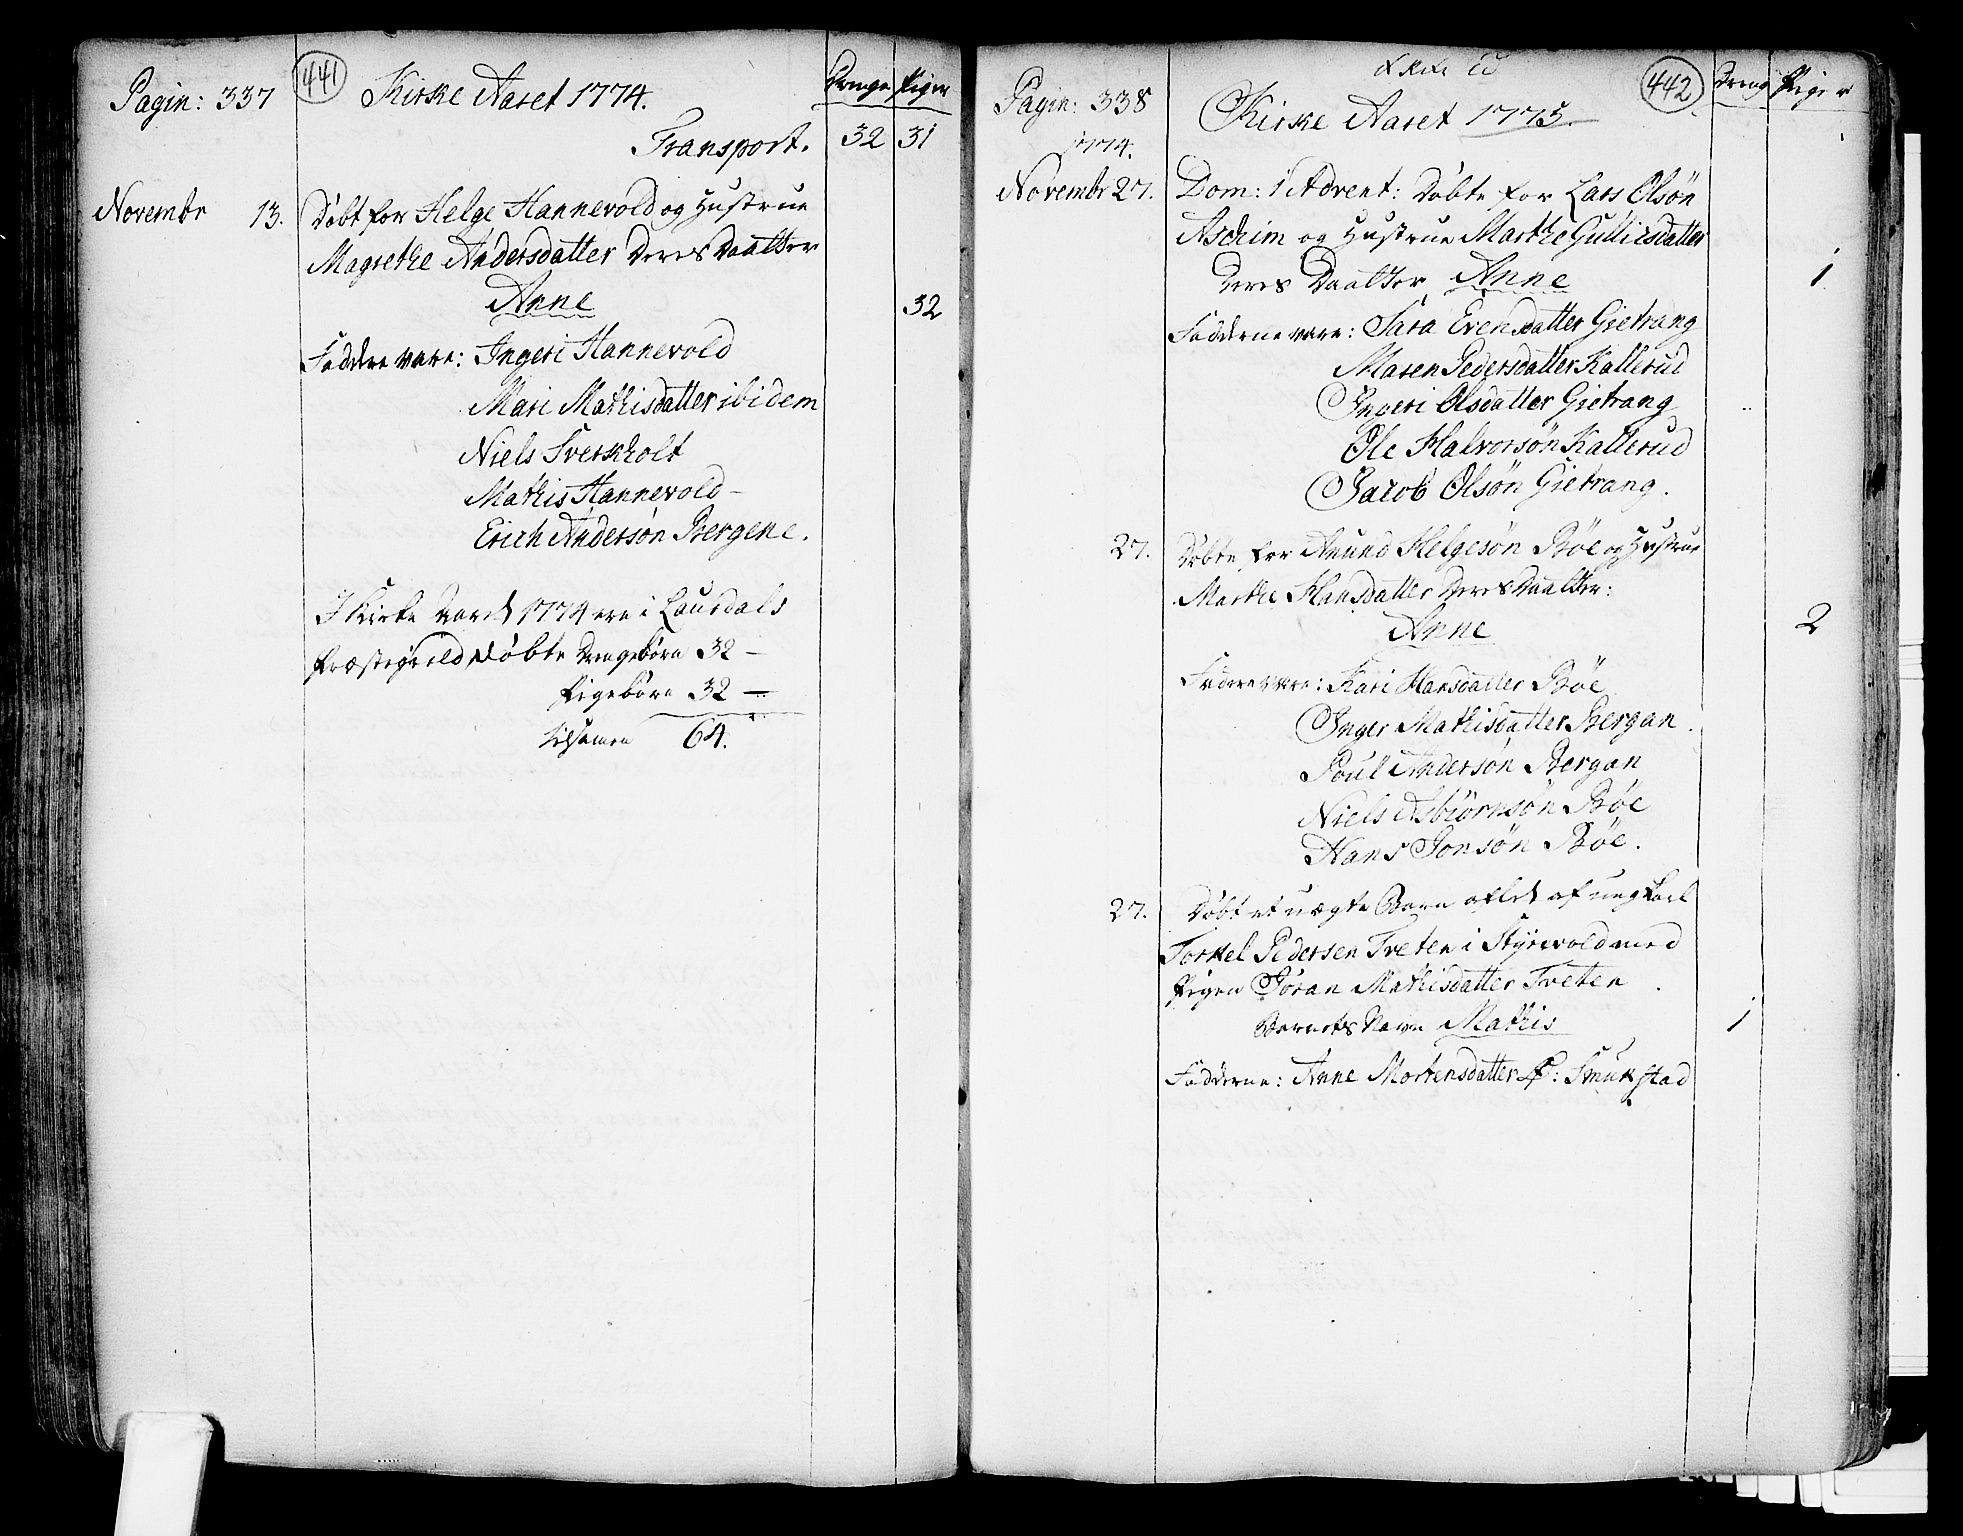 Pagin: 337
441
Kirke Aaret 1774.
Drenge Piger
Transport. 32 31
Novembr 13. Døbt for Helge Hannevold og Hustrue
Magrethe Andersdatter Deres Daatter
Anne
32
Faddere vare: Ingeri Hannevold
Mari Mathisdatter ibidem
Niels Sverkholt
Mathis Hannevold
Erich Andersøn Bergene.
I Kirke Aaret 1774 ere i Laurdals
Præstegield Døbte Drengebørn 32 –
Pigebørn 32 –
tilsamen 64.
Pagin: 338
442
Kirke Aaret 1775.
Drenge Piger
1774.
Novembr 27. Dom: 1 Advent: Døbte for Lars Olsøn
Aschim og Hustrue Marthe Gullicsdatter
Deres Daatter Anne
1
Fadderne vare: Sara Evensdatter Gietrang
Maren Pedersdatter Kallerud
Ingeri Olsdatter Gietrang
Ole Halvorsøn Kallerud
Jacob Olsøn Gietrang.
27. Døbte for Anund Helgesøn Bøe og Hustrue
Marthe Hansdatter Deres Daatter:
Anne
2
Fadere vare: Kari Hansdatter Bøe
Inger Mathisdatter Bergan.
Poul Andersøn Bergan
Niels Asbiørnsøn Bøe
Hans Jonsøn Bøe.
27. Døbt et uægte Barn aflet af ungkarl
Torkel Pedersen Tveten i Styrvold med
Pigen Jöran Mathisdatter Tveten
Barnets Navn Mathis
1
Fadderne: Anne Mortensdatter Smukstad